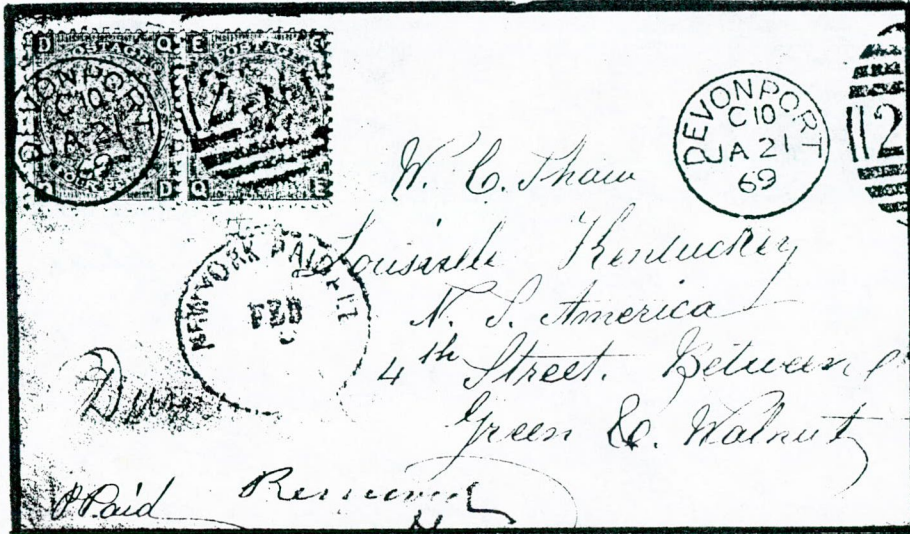 D Q E E
POSTAGE POSTAGE
DEVONPORT
C10
JA 21
69
Q D Q E
DEVONPORT
C10
JA 21
69
2
W. C. Thaw
Louisvlle Kentuckey
N. S. America
4th Street. Between
Green &. Walnut
NEW YORK PAID ALL
FEB
Paid